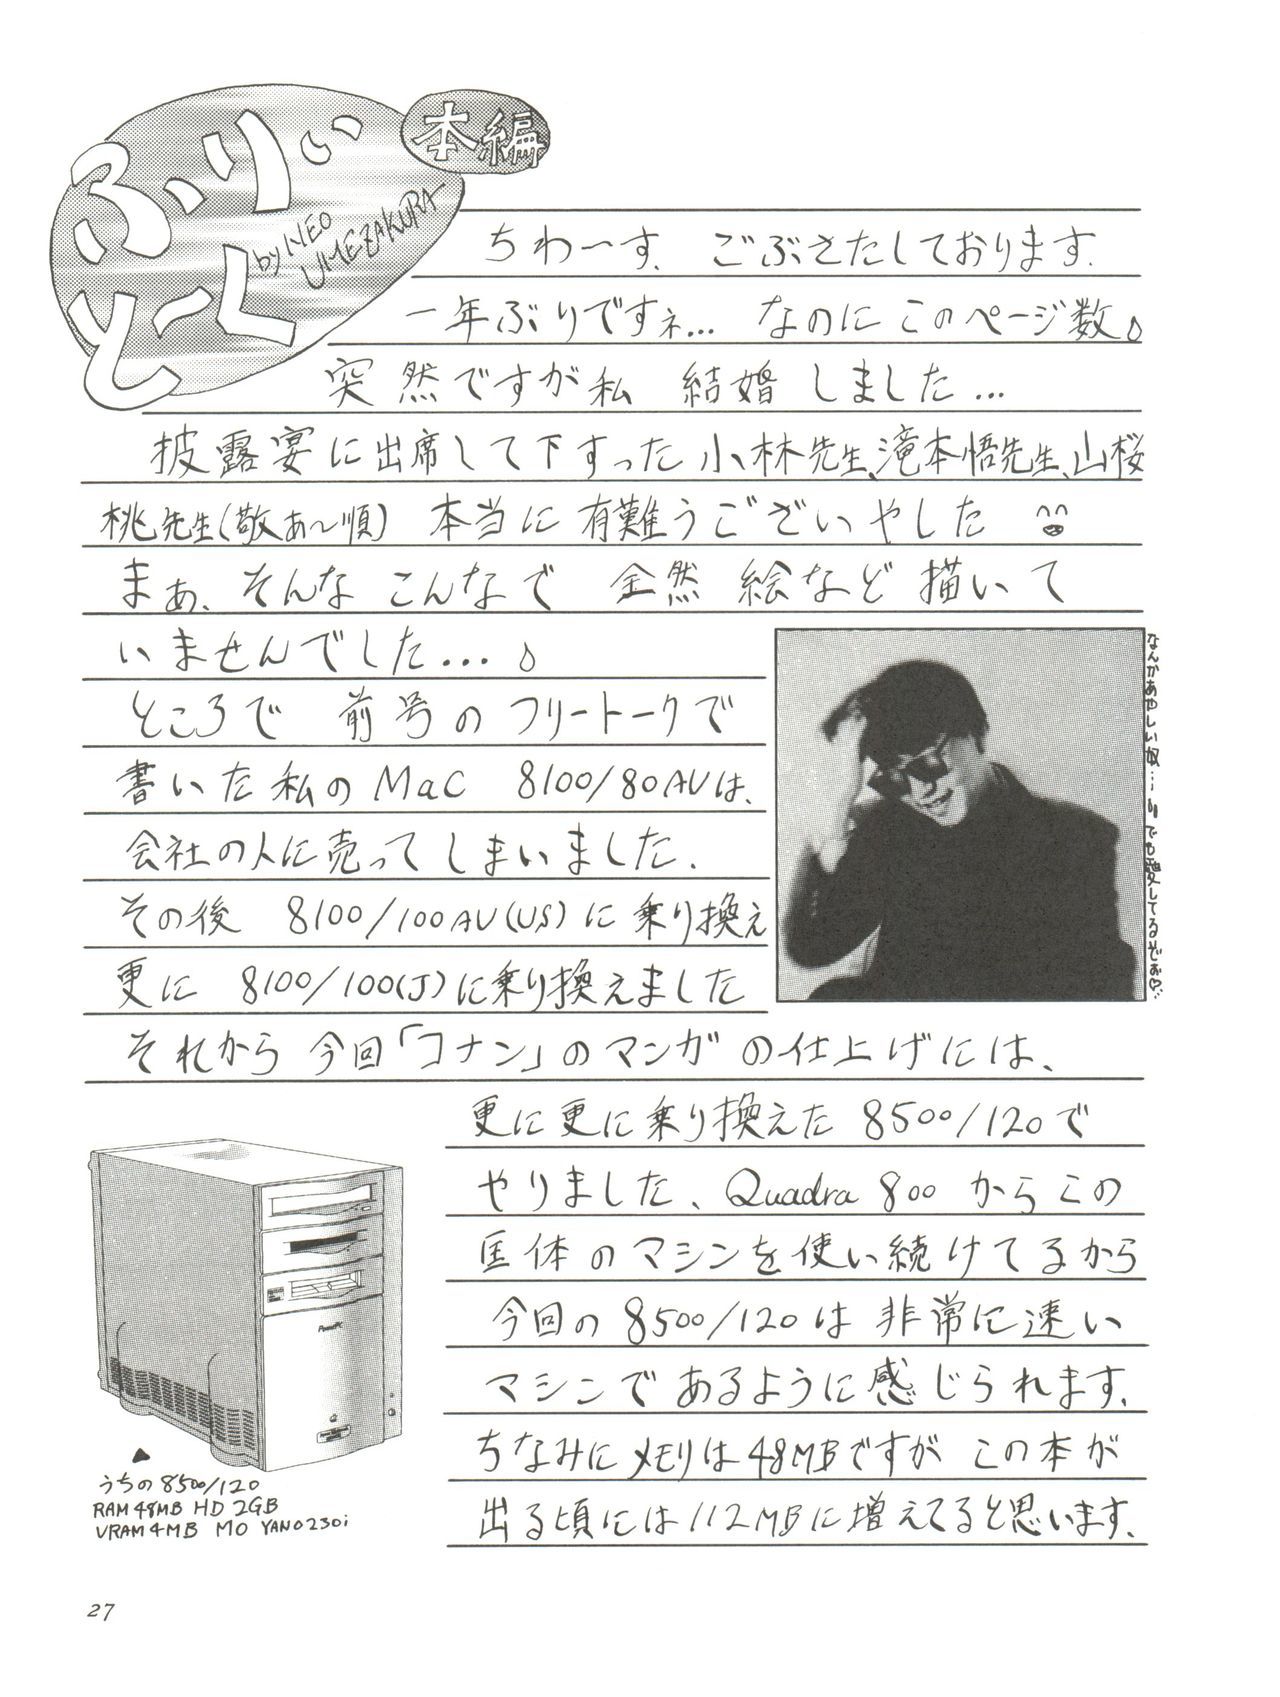 ふりぃ
とーく
本編
by NEO
UMEZAKURA
ちわ〜す、ごぶさたしております.
一年ぶりですネ… なのにこのページ数♪
突然ですが私 結婚しました…
披露宴に出席して下すった小林先生、滝本悟先生、山桜
桃先生(敬あ〜順) 本当に有難うございやした
まぁ、そんなこんなで 全然 絵など描いて
いませんでした…♪
ところで 前号のフリートークで
書いた私のMac 8100/80AVは、
会社の人に売ってしまいました.
その後 8100/100AV(US)に乗り換え
更に 8100/100(J)に乗り換えました
それから今回「コナン」のマンガの仕上げには、
更に更に乗り換えた 8500/120で
やりました、Quadra 800 からこの
匡体のマシンを使い続けてるから
今回の8500/120は非常に速い
マシンであるように感じられます.
ちなみにメモリは48MBですが この本が
出る頃には112MBに増えてると思います.
なんかあやしい奴…でも愛してるぞぉ♡
PowerPC
▲
うちの8500/120
RAM 48MB HD 2GB
VRAM 4MB MO YANO230i
27